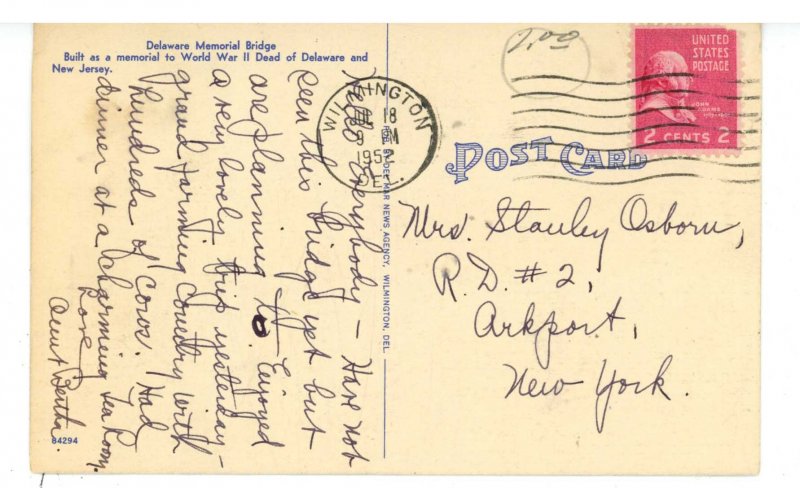 Delaware Memorial Bridge
Built as a memorial to World War II Dead of Delaware and
New Jersey.
Hello Everybody – Have not
seen this bridge yet but
are planning to. Enjoyed
a very lovely trip yesterday –
grand farming country with
hundreds of cows. Had
dinner at a charming Tea Room.
Love
Aunt Bertha.
84294
DEL MAR NEWS AGENCY, WILMINGTON, DEL.
WILMINGTON
18
9 M
195
DEL.
2.00
UNITED
STATES
POSTAGE
JOHN
ADAMS
2 CENTS 2
POST CARD
Mrs. Stanley Osborn,
R.D. #2,
Arkport,
New York.